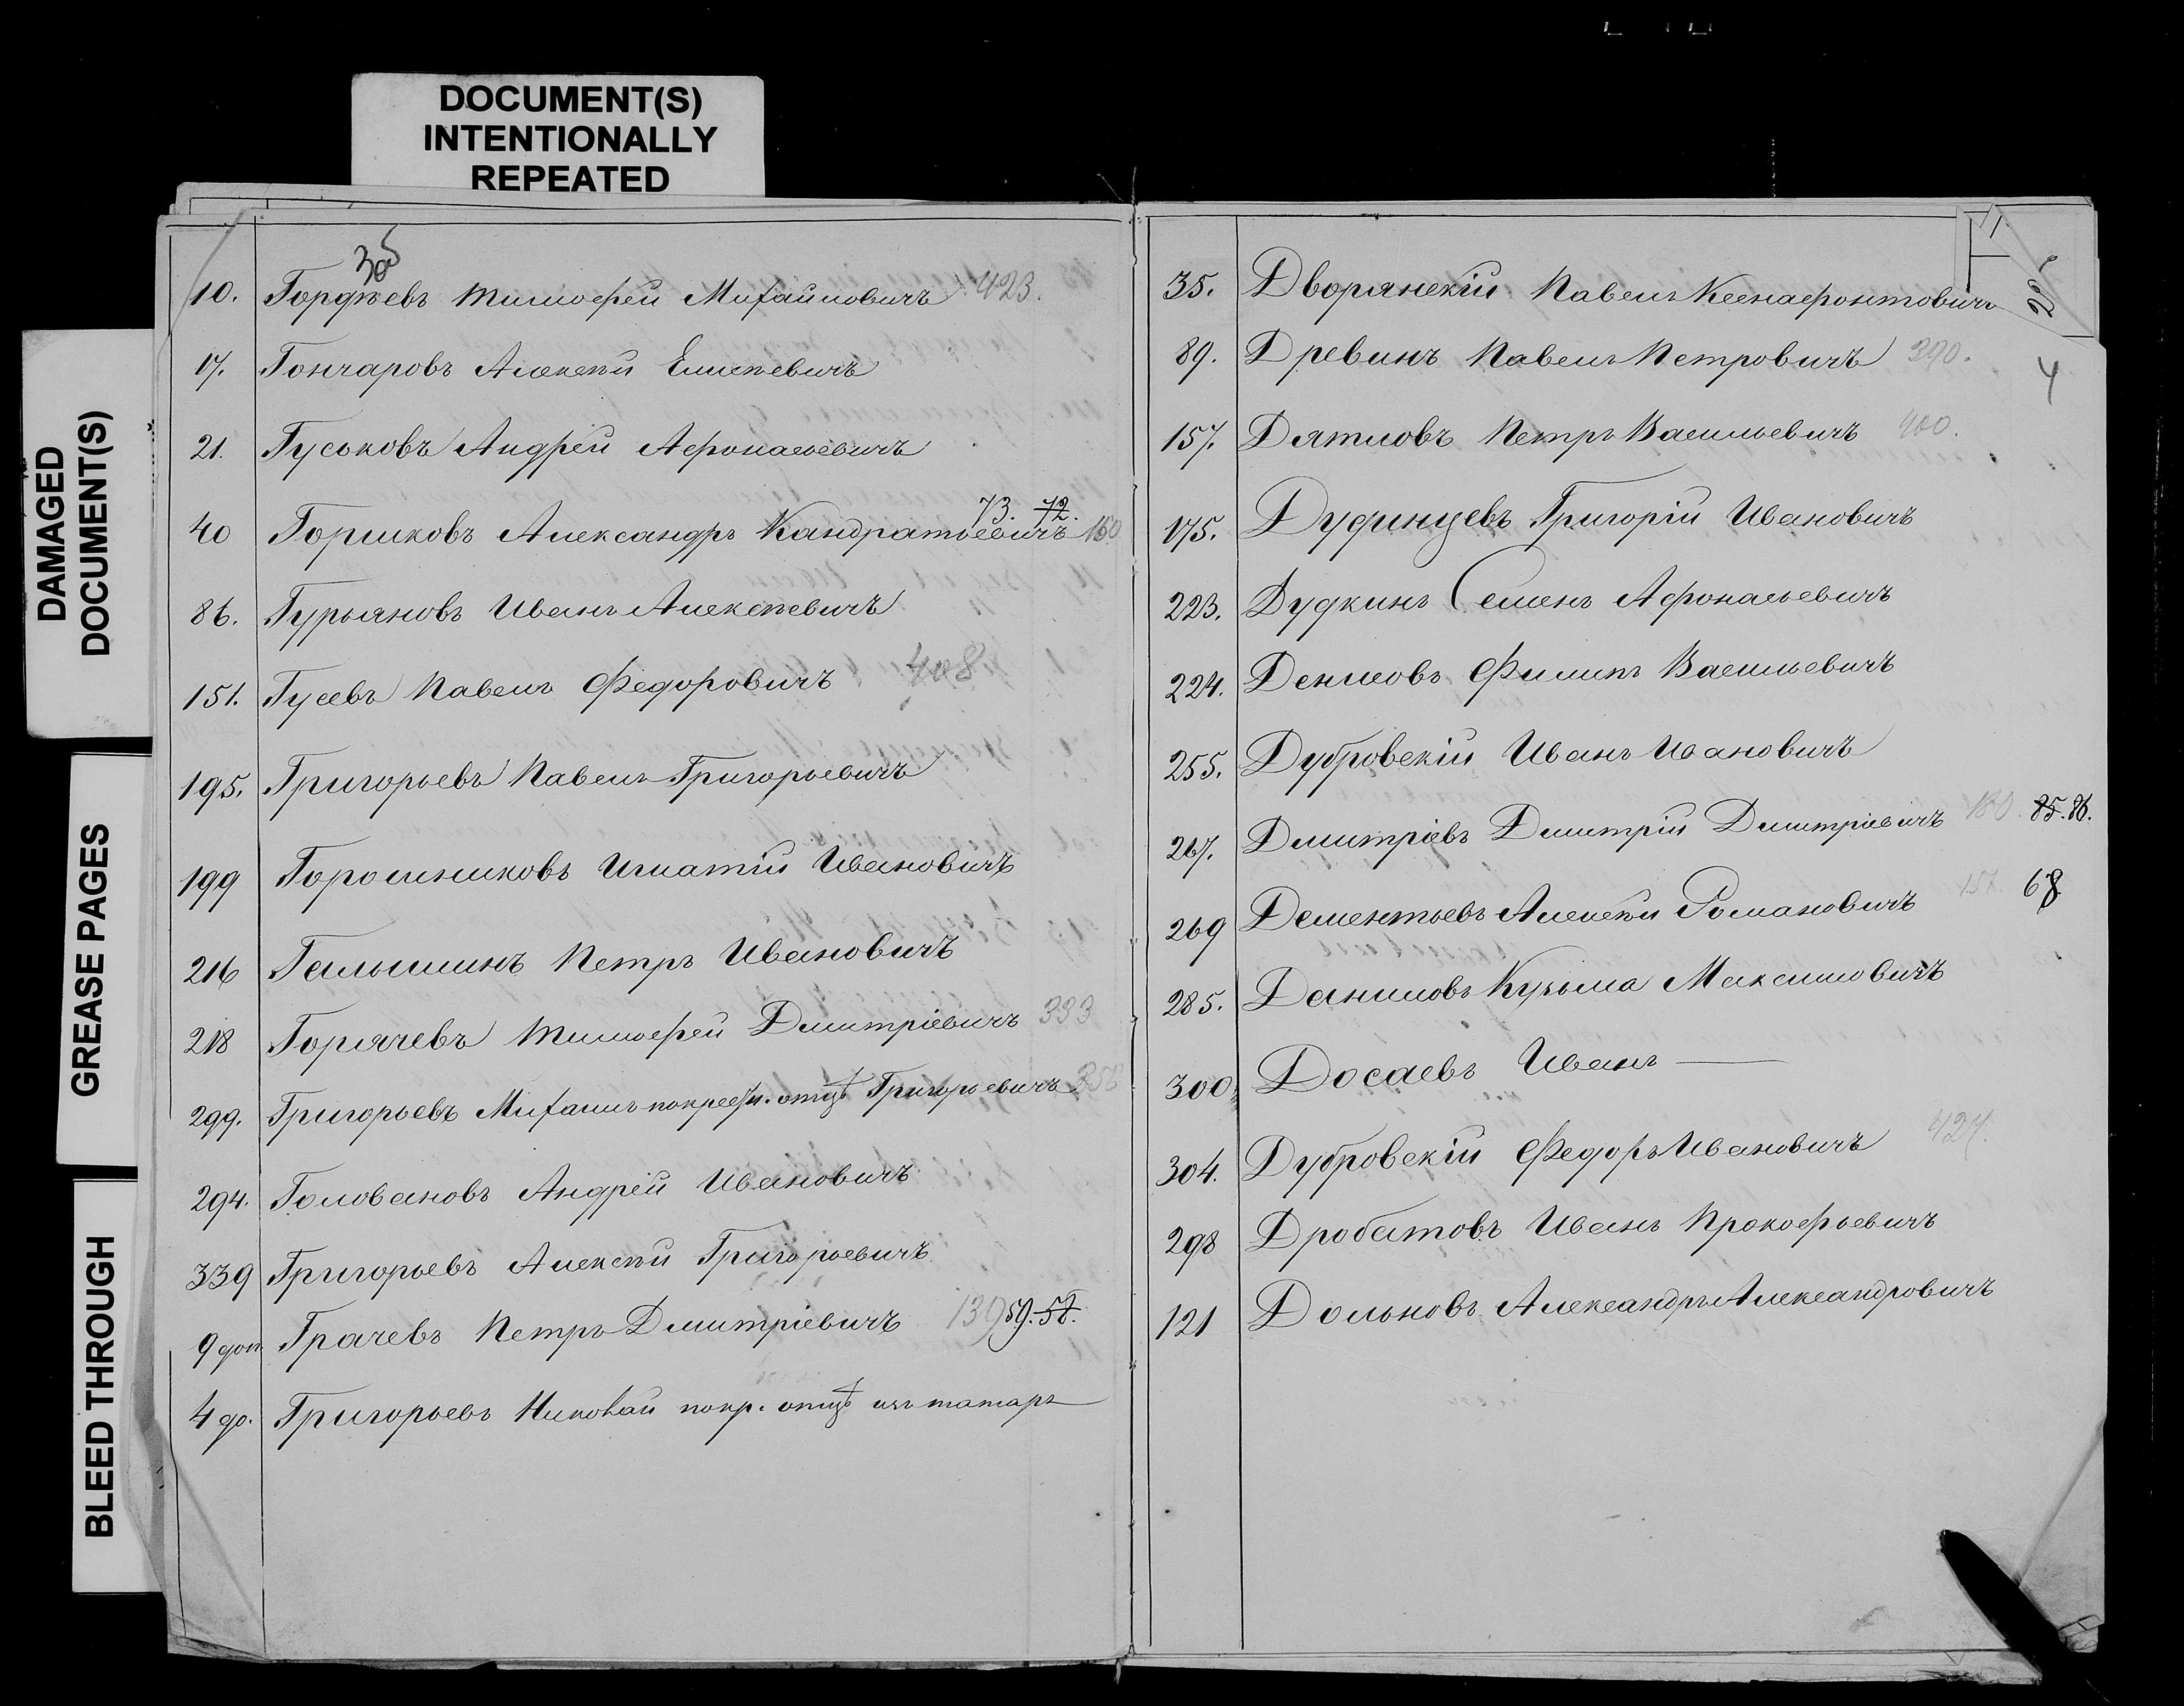 DOCUMENT(S)
INTENTIONALLY
REPEATED
DAMAGED
DOCUMENT(S)
GREASE PAGES
BLEED THROUGH
10. Гордѣевъ Тимофей Михайловичъ 423.
17. Гончаровъ Алексѣй Елисѣевичъ
21. Гуськовъ Андрей Афонасьевичъ
73. 72.
40 Горшковъ Александръ Кандратьевичъ 150
86. Гурьяновъ Иванъ Алексѣевичъ
151. Гусевъ Павелъ Федоровичъ 408
195. Григорьевъ Павелъ Григорьевичъ
199 Горошниковъ Игнатій Ивановичъ
216 Галышинъ Петръ Ивановичъ
218 Горячевъ Тимофей Дмитріевичъ 333
299. Григорьевъ Михаилъ по крестн. отцѣ Григорьевичъ 358
294. Головановъ Андрей Ивановичъ
339 Григорьевъ Алексѣй Григорьевичъ
9 доп Грачевъ Петръ Дмитріевичъ 139 59. 58.
4 до. Григорьевъ Николай покр. отцѣ изъ татаръ
35. Дворянскій Павелъ Ксенафонтовичъ
89. Древинъ Павелъ Петровичъ 390.
4
157. Дятловъ Петръ Васильевичъ 400.
175. Дудинцевъ Григорій Ивановичъ
223. Дудкинъ Семенъ Афонасьевичъ
224. Денисовъ Филипъ Васильевичъ
255. Дубровскій Иванъ Ивановичъ
267. Дмитріевъ Дмитрій Дмитріевичъ 180. 85. 86.
269 Дементьевъ Алексѣй Романовичъ 157. 68
285. Даниловъ Кузьма Максимовичъ
300, Досаевъ Иванъ —
304. Дубровскій Федоръ Ивановичъ 427.
298 Дробатовъ Иванъ Прокофьевичъ
121 Дольновъ Александръ Александровичъ